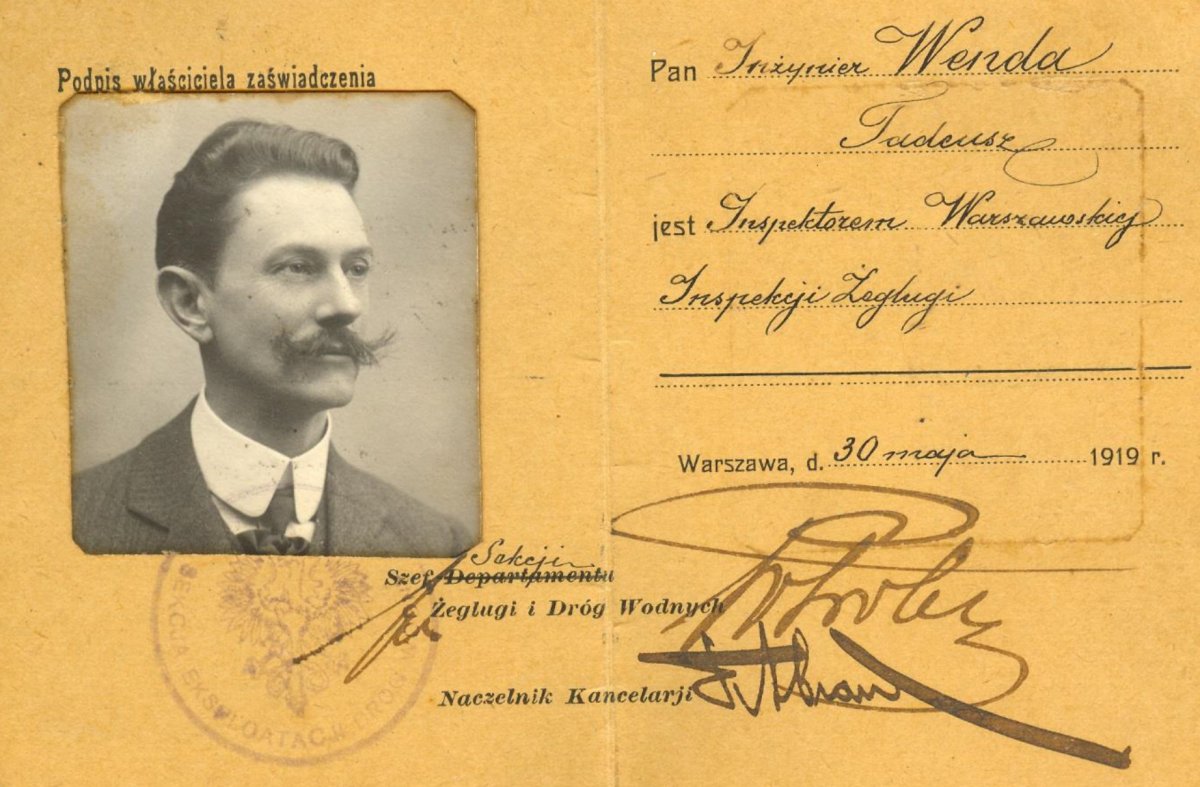 Podpis właściciela zaświadczenia
Pan Inżynier Wenda
Tadeusz
jest Inspektorem Warszawskiej
Inspekcji Żeglugi
Warszawa, d. 30 maja 1919 r.
Sekcji
Szef Departamentu
Żeglugi i Dróg Wodnych
Naczelnik Kancelarji
SEKCJA EKSPLOATACJI DRÓG W